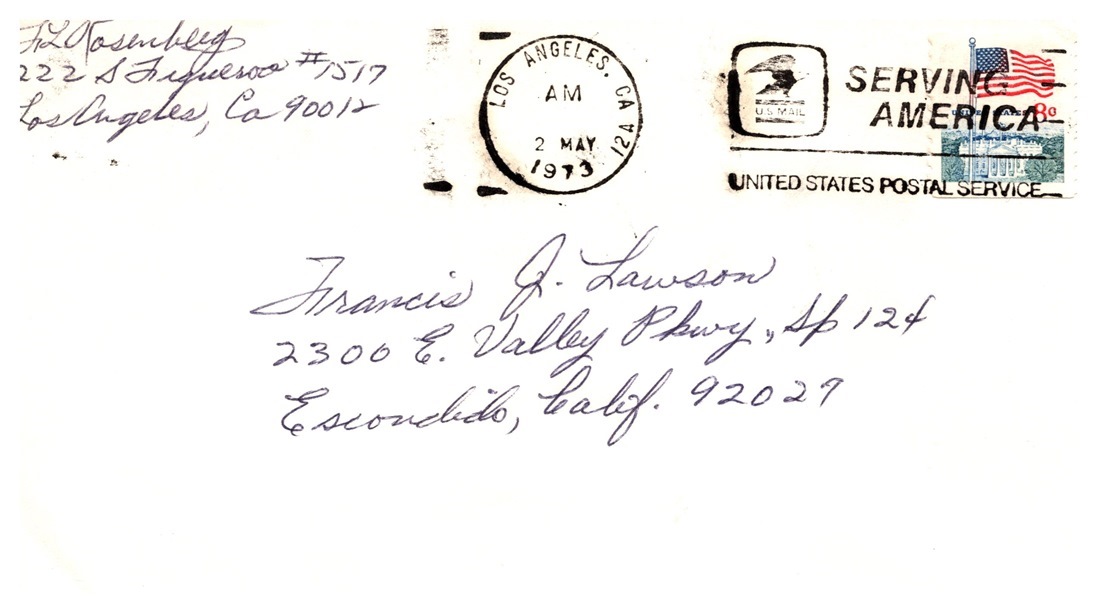 F L Rosenberg
222 S Figueroa #1517
Los Angeles, Ca 90012
LOS ANGELES, CA 12A
AM
2 MAY
1973
U.S. MAIL
SERVING
AMERICA
UNITED STATES POSTAL SERVICE
8c
Francis J. Lawson
2300 E. Valley Pkwy, Sp 124
Escondido, Calif. 92027